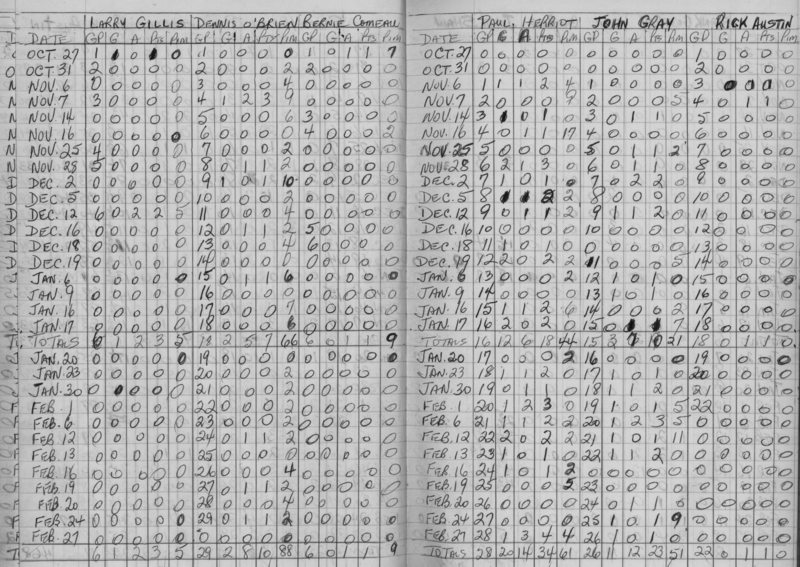 LARRY GILLIS DENNIS O'BRIEN BERNIE COMEAU
DATE GP G A Pts Pim GP G A Pts Pim GP G A Pts Pim
OCT. 27 1 1 0 1 0 1 0 0 0 0 1 0 1 1 7
OCT 31 2 0 0 0 0 2 0 0 0 2 2 0 0 0 0
NOV. 6 0 0 0 0 0 3 0 0 0 4 0 0 0 0 0
NOV. 7 3 0 0 0 0 4 1 2 3 9 0 0 0 0 0
NOV. 14 0 0 0 0 0 5 0 0 0 6 3 0 0 0 0
NOV. 16 0 0 0 0 0 6 0 0 0 0 4 0 0 0 2
NOV. 25 4 0 0 0 0 7 0 0 0 2 0 0 0 0 0
NOV. 28 5 0 0 0 0 8 0 1 1 2 0 0 0 0 0
DEC. 2 0 0 0 0 0 9 1 0 1 10 0 0 0 0 0
DEC. 5 0 0 0 0 0 10 0 0 0 2 0 0 0 0 0
DEC. 12 6 0 2 2 5 11 0 0 0 4 0 0 0 0 0
DEC. 16 0 0 0 0 0 12 0 1 1 2 5 0 0 0 0
DEC. 18 0 0 0 0 0 13 0 0 0 4 6 0 0 0 0
DEC. 19 0 0 0 0 0 14 0 0 0 0 0 0 0 0 0
JAN. 6 0 0 0 0 0 15 0 1 1 6 0 0 0 0 0
JAN. 9 0 0 0 0 0 16 0 0 0 0 0 0 0 0
JAN. 16 0 0 0 0 0 17 0 0 0 0 0 0 0 0
JAN. 17 0 0 0 0 0 18 0 0 0 6 0 0 0 0 0
TOTALS 6 1 2 3 5 18 2 5 7 66 6 0 1 1 9
JAN. 20 0 0 0 0 0 19 0 0 0 0 0 0 0 0 0
JAN. 23 0 0 0 0 0 20 0 0 0 2 0 0 0 0 0
JAN. 30 0 0 0 0 0 21 0 0 0 2 0 0 0 0 0
FEB. 1 0 0 0 0 0 22 0 0 0 2 0 0 0 0 0
FEB. 6 0 0 0 0 0 23 0 0 0 2 0 0 0 0 0
FEB. 12 0 0 0 0 0 24 0 1 1 2 0 0 0 0 0
FEB. 13 0 0 0 0 0 25 0 0 0 0 0 0 0 0 0
FEB. 16 0 0 0 0 0 26 0 0 0 4 0 0 0 0 0
FEB. 19 0 0 0 0 0 27 0 1 1 2 0 0 0 0 0
FEB. 20 0 0 0 0 0 28 0 0 0 4 0 0 0 0 0
FEB. 24 0 0 0 0 0 29 0 1 1 2 0 0 0 0 0
FEB. 27 0 0 0 0 0 0 0 0 0 0 0 0 0 0 0
6 1 2 3 5 29 2 8 10 88 6 0 1 9
PAUL HERRIOT JOHN GRAY RICK AUSTIN
DATE GP G A Pts Pim GP G A Pts Pim GP G A Pts Pim
OCT. 27 0 0 0 0 0 0 0 0 0 0 1 0 0 0 0
OCT. 31 0 0 0 0 0 0 0 0 0 0 2 0 0 0 0
NOV. 6 1 1 1 2 4 1 0 0 0 0 3 0 0 0 0
NOV. 7 2 0 0 0 2 0 0 0 5 4 0 1 1 0
NOV. 14 3 1 0 1 0 3 0 1 1 5 0 0 0 0
NOV. 16 4 0 1 1 17 4 0 0 0 0 6 0 0 0 0
NOV. 25 5 0 0 0 0 5 0 1 1 2 7 0 0 0 0
NOV. 28 6 2 1 3 0 6 0 1 1 0 8 0 0 0 0
DEC. 2 7 1 0 1 0 7 0 2 2 0 9 0 0 0 0
DEC. 5 8 1 1 2 2 8 0 0 0 0 10 0 0 0 0
DEC. 12 9 0 1 1 2 9 1 1 2 0 11 0 0 0 0
DEC. 16 10 0 0 0 0 10 0 0 0 0 12 0 0 0
DEC. 18 11 1 0 1 0 0 0 0 0 0 13 0 0 0 0
DEC. 19 12 2 0 2 2 11 0 0 0 5 14 0 0 0 0
JAN. 6 13 0 0 0 2 12 1 0 1 0 15 0 0 0 0
JAN. 9 14 0 0 0 0 13 1 0 1 0 16 0 0 0 0
JAN. 16 15 1 1 2 6 14 0 0 0 2 17 0 0 0 0
JAN. 17 16 2 0 2 0 15 0 1 1 7 18 0 0 0 0
TOTALS 16 12 6 18 44 15 3 21 18 0 1 1 0
JAN. 20 17 0 0 0 2 16 0 0 0 0 19 0 0 0 0
JAN. 23 18 1 1 2 0 17 1 0 1 0 20 0 0 0 0
JAN. 30 19 0 1 1 0 18 1 1 2 0 21 0 0 0 0
FEB. 1 20 1 2 3 0 19 1 0 1 5 22 0 0 0 0
FEB. 6 21 1 1 2 2 20 1 2 3 5 0 0 0 0 0
FEB. 12 22 2 0 2 2 21 1 0 1 11 0 0 0 0 0
FEB. 13 23 1 0 1 0 22 1 1 2 0 0 0 0 0 0
FEB. 16 24 1 0 1 2 0 0 0 0 0 0 0 0 0 0
FEB. 19 25 0 0 0 5 23 0 0 0 0 0 0 0 0 0
FEB. 20 26 0 0 0 0 24 0 1 1 0 0 0 0 0 0
FEB. 24 27 0 0 0 0 25 1 0 1 9 0 0 0 0 0
FEB. 27 28 1 3 4 4 26 1 0 1 0 0 0 0 0 0
TOTALS 28 20 14 34 61 26 11 12 23 51 22 0 1 1 0